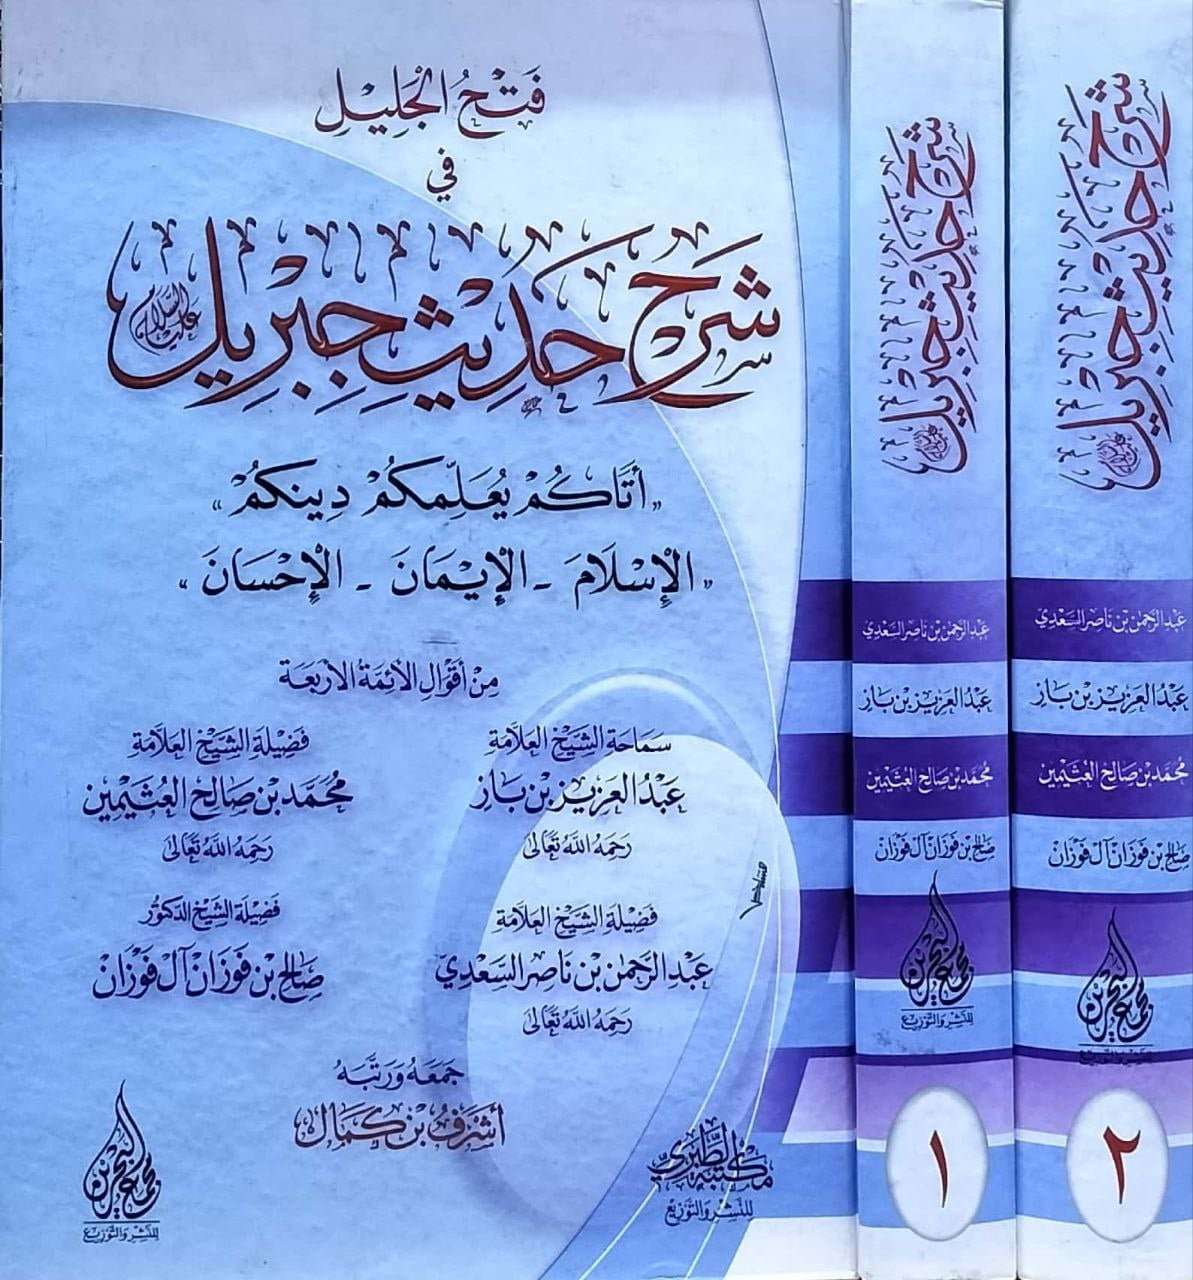 فَتْحُ الجَلِيلِ
في
شَرْحِ حَدِيثِ جِبْرِيلَ عليه السلام
«أَتَاكُمْ يُعَلِّمُكُمْ دِينَكُمْ»
«الْإِسْلَامَ - الْإِيمَانَ - الْإِحْسَانَ»
مِنْ أَقْوَالِ الأَئِمَّةِ الأَرْبَعَةِ
سَمَاحَة الشَّيْخ العَلَّامَة
عَبْدُ العَزِيزِ بْن بَاز
رَحِمَهُ اللَّهُ تَعَالَى
فَضِيلَة الشَّيْخ العَلَّامَة
مُحَمَّد بْن صَالِح العُثَيْمِين
رَحِمَهُ اللَّهُ تَعَالَى
فَضِيلَة الشَّيْخ العَلَّامَة
عَبْد الرَّحْمٰن بْن نَاصِر السَّعْدِيّ
رَحِمَهُ اللَّهُ تَعَالَى
فَضِيلَة الشَّيْخ الدكتُور
صَالِح بْن فَوْزَان آل فَوْزَان
جَمَعَهُ وَرَتَّبَهُ
أَشْرَفُ بْن كَمَال
مكتبة الطبري
للنَّشْرِ وَالتَّوْزِيعِ
مجمع البحرين
للنَّشْرِ وَالتَّوْزِيعِ
شرح حديث جبريل عليه السلام
عَبْد الرَّحْمٰن بْن نَاصِر السَّعْدِي
عَبْدُ العَزِيزِ بْن بَاز
مُحَمَّد بْن صَالِح العُثَيْمِين
صَالِح بْن فَوْزَان آل فَوْزَان
مجمع البحرين
للنَّشْرِ وَالتَّوْزِيعِ
١
شرح حديث جبريل عليه السلام
عَبْد الرَّحْمٰن بْن نَاصِر السَّعْدِي
عَبْدُ العَزِيزِ بْن بَاز
مُحَمَّد بْن صَالِح العُثَيْمِين
صَالِح بْن فَوْزَان آل فَوْزَان
مجمع البحرين
للنَّشْرِ وَالتَّوْزِيعِ
٢